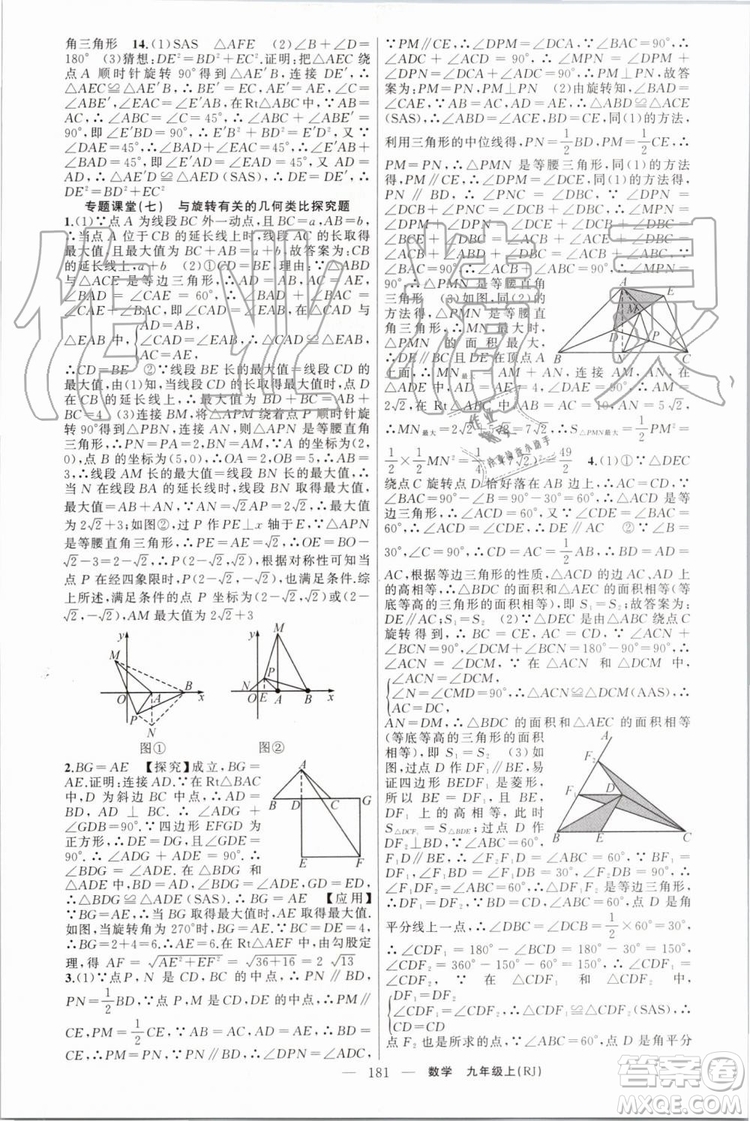 角三角形 14.(1)SAS △AFE (2)∠B+∠D=
180° (3)猜想:DE²=BD²+EC².证明:把△AEC绕
点A顺时针旋转90°得到△AE′B,连接DE′,∴
△AEC≌△AE′B,∴BE′=EC,AE′=AE,∠C=
∠ABE′,∠EAC=∠E′AB,在Rt△ABC中,∵AB=
AC,∴∠ABC=∠C=45°,∴∠ABC+∠ABE′=
90°,即∠E′BD=90°,∴E′B²+BD²=E′D².又∵
∠DAE=45°,∴∠BAD+∠EAC=45°,∴∠E′AB+
∠BAD=45°,即∠E′AD=45°,∴△AE′D≌△AED,
∴DE=DE′,∴DE²=BD²+EC²
专题课堂(七) 与旋转有关的几何类比探究题
1.(1)∵点A为线段BC外一动点,且BC=a,AB=b,
∴当点A位于CB的延长线上时,线段AC的长取得
最大值,且最大值为BC+AB=a+b.故答案为:CB的
延长线上,a+b (2)①CD=BE,理由:∵△ABD
与△ACE是等边三角形,∴AD=AB,AC=AE,
∠BAD=∠CAE=60°,∴∠BAD+∠BAC=∠CAE
+∠BAC,即∠CAD=∠EAB,在△CAD与△EAB
中,
AD=AB,
∠CAD=∠EAB,∴△CAD≌△EAB(SAS),
AC=AE,
∴CD=BE ②∵线段BE长的最大值=线段CD的
最大值,由(1)知,当线段CD的长取得最大值时,点D
在CB的延长线上,∴最大值为BD+BC=AB+BC=
4 (3)∵将△APM绕着点P顺时针旋转90°得到
△PBN,连接AN,则△APN是等腰直角
三角形,∴PN=PA=2,BN=AM,∵A的坐标为(2,
0),点B的坐标为(5,0),∴OA=2,OB=5,∴AB=3,
∴线段AM长的最大值=线段BN长的最大值,∴当N
在线段BA的延长线时,线段BN取得最大值,
最大值=AB+AN,∵AN=√2AP=2√2,∴最大值
为2√2+3;如图②,过P作PE⊥x轴于E,∵△APN
是等腰直角三角形,∴PE=AE=√2,∴OE=BO-
√2-3=2-√2,∴P(2-√2,√2).根据对称性可知当
点P在第四象限时,P(2-√2,-√2)时,也满足条件.综
上所述,满足条件的点P坐标(2-√2,√2)或(2-√2,
-√2),AM最大值为2√2+3
y M O A B x P N
图①
y M P O E A B x
图②
2.BG=AE 【探究】成立,BG=
AE.证明:连接AD.在Rt△ABC中,
D为斜边BC中点,∴AD=
BD,AD⊥BC,∴∠ADG+
∠GDB=90°.∵四边形EFGD为
正方形,∴DE=DG,且∠GDE=
90°,∴∠ADG+∠ADE=90°,∴
∠BDG=∠ADE.∴△BDG≌
△ADE中,BD=AD,∠BDG=∠ADE,GD=ED,
∴△BDG≌△ADE(SAS).∴BG=AE 【应用】
∵BG=AE,∴当BG取得最大值时,AE取得最大值.
如图,当旋转角为270°时,BG=AE.∵BC=DE=4,
∴BG=2+4=6.∴AE=6.在Rt△AEF中,由勾股定
理,得AF=√AE²+EF²=√36+16=2√13
A B D C G E F
3.(1)∵点P,N是BC,CD的中点,∴PN∥BD,
PN=1/2BD,∵点P,M是CD,DE的中点,∴PM∥
CE,PM=1/2CE,∵AB=AC,AD=AE,∴BD=
CE,∴PM=PN,∵PN∥BD,∴∠DPN=∠ADC,
∵PM∥CE,∴∠DPM=∠DCA,∵∠BAC=90°,
∴∠ADC+∠ACD=90°,∴∠MPN=∠DPM+
∠DPN=∠DCA+∠ADC=90°,∴PM⊥PN,故答
案为:PM=PN,PM⊥PN (2)由旋转知,∠BAD=
∠CAE,∵AB=AC,AD=AE,∴△ABD≌△ACE
(SAS),∴∠ABD=∠ACE,BD=CE,同(1)的方法,
利用三角形的中位线得,PN=1/2BD,PM=1/2CE,∴
PM=PN,∴△PMN是等腰三角形,同(1)的方法
得,PM∥CE,∴∠DPM=∠DCE,同(1)的方法
得,PN∥BD,∴∠PNC=∠DBC,∵∠DPN=
∴△PMN是等腰直角
三角形 (3)如图,同(2)的
方法得,△PMN是等腰直
角三角形,∴MN最大时,
△PMN的面积最大,∴
DE∥BC且DE在顶点A
上面,∴MN最大=AM+AN,连接AM,AN,∴AM=
2√2,在Rt△ABC中,AB=AC=10,AN=5√2,
∴MN最大=2√2+5√2=7√2,∴S△PMN最大=1/2PM²=
1/2×1/2MN²=1/4×(7√2)²=49/2 4.(1)①∵△DEC
绕点C旋转点D恰好落在AB边上,∴AC=CD,
∴△ACD是等边三角形,∴∠ACD=60°,又∵
∠CDE=∠BAC=60°,∴∠ACD=∠CDE,∴
DE∥AC ②∵∠B=
30°,∠C=90°,∴CD=AC=1/2AB,∴BD=AD=
AC,根据等边三角形的性质,△ACD的边AC,AD上
的高相等,∴△BDC的面积和△AEC的面积相等(等
底等高的三角形的面积相等),即S₁=S₂;故答案为:
DE∥AC;S₁=S₂ (2)∵△DEC是由△ABC绕点C
旋转得到,∴BC=CE,AC=CD,∵∠ACN+
∠BCN=90°,∠DCM+∠BCN=180°-90°=90°,
∴∠ACN=∠DCM,∵在△ACN和△DCM中,
∠ACN=∠DCM,
∠N=∠CMD=90°,∴△ACN≌△DCM(AAS),∴
AC=CD,
AN=DM,∴△BDC的面积和△AEC的面积相等
(等底等高的三角形的面积
相等),即S₁=S₂ (3)如
图,过点D作DF₁∥BE,易
证四边形BEDF₁是菱形,
所以BE=DF₁,且BE,
DF₁上的高相等,此时
S△DCF₁=S△BDE;过点D作
DF₂⊥BD,∵∠ABC=60°,
F₁D∥BE,∴∠F₂F₁D=∠ABC=60°,∵BF₁=
DF₁,∴∠F₁BD=1/2∠ABC=30°,∠F₂DB=90°,∴
∠F₁DF₂=∠ABC=60°,∴△DF₁F₂是等边三角形,
∴DF₁=DF₂,∵BD=CD,∠ABC=60°,点D是角
平分线上一点,∴∠DBC=∠DCB=1/2×60°=30°,
∴∠CDF₁=180°-∠BCD=180°-30°=150°,
∠CDF₂=360°-150°-60°=150°,∴∠CDF₁=
∠CDF₂,∵在△CDF₁和△CDF₂中,
DF₁=DF₂
∠CDF₁=∠CDF₂,∴△CDF₁≌△CDF₂(SAS),∴
CD=CD
点F₂也是所求的点,∵∠ABC=60°,点D是角平分
A E D M P B N C
A F₂ F₁ D B E C
— 181 — 数学 九年级上(RJ)
作业精灵
答案圈
MXQE.COM